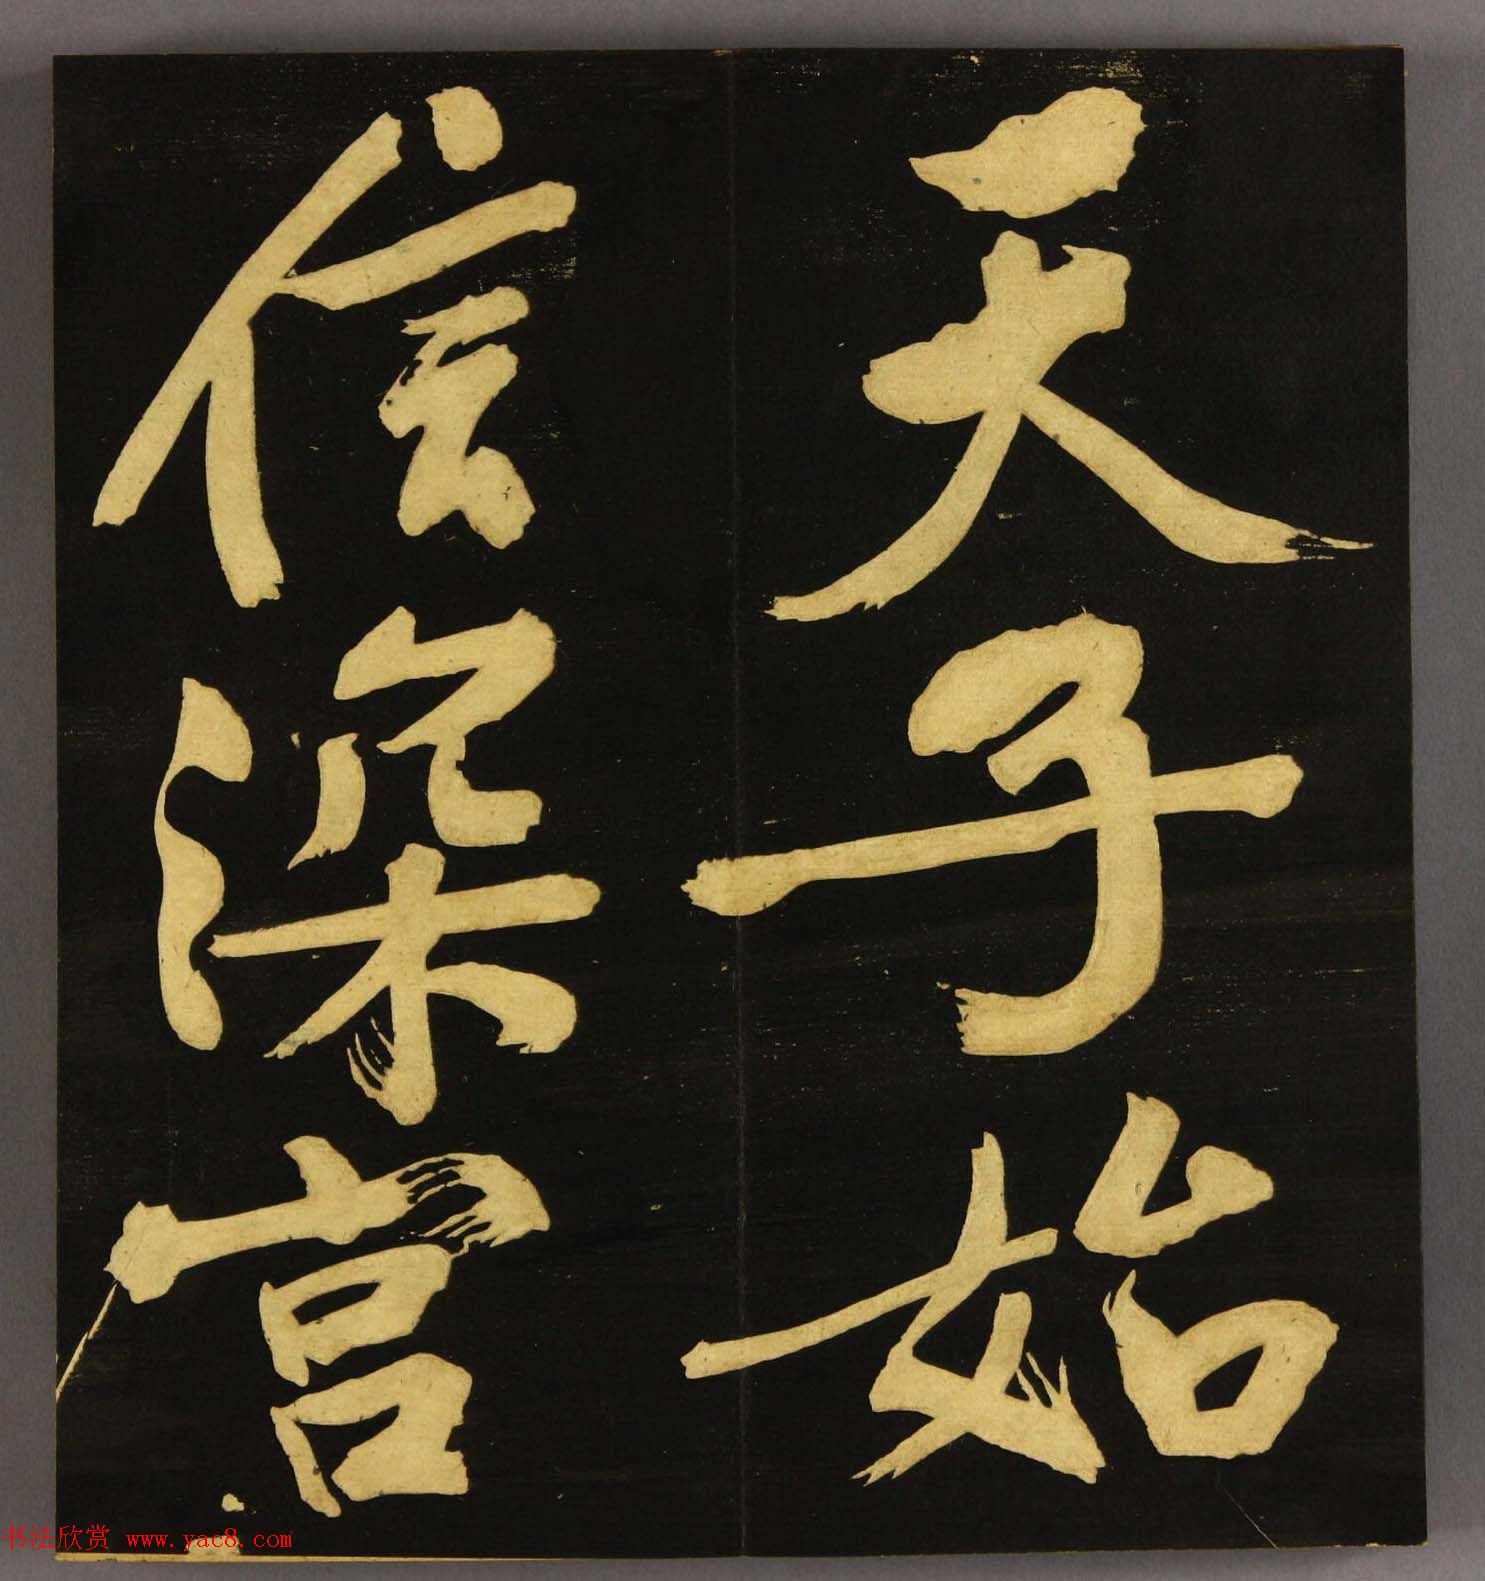 天子始
信深宫
书法欣赏 www.yac8.com